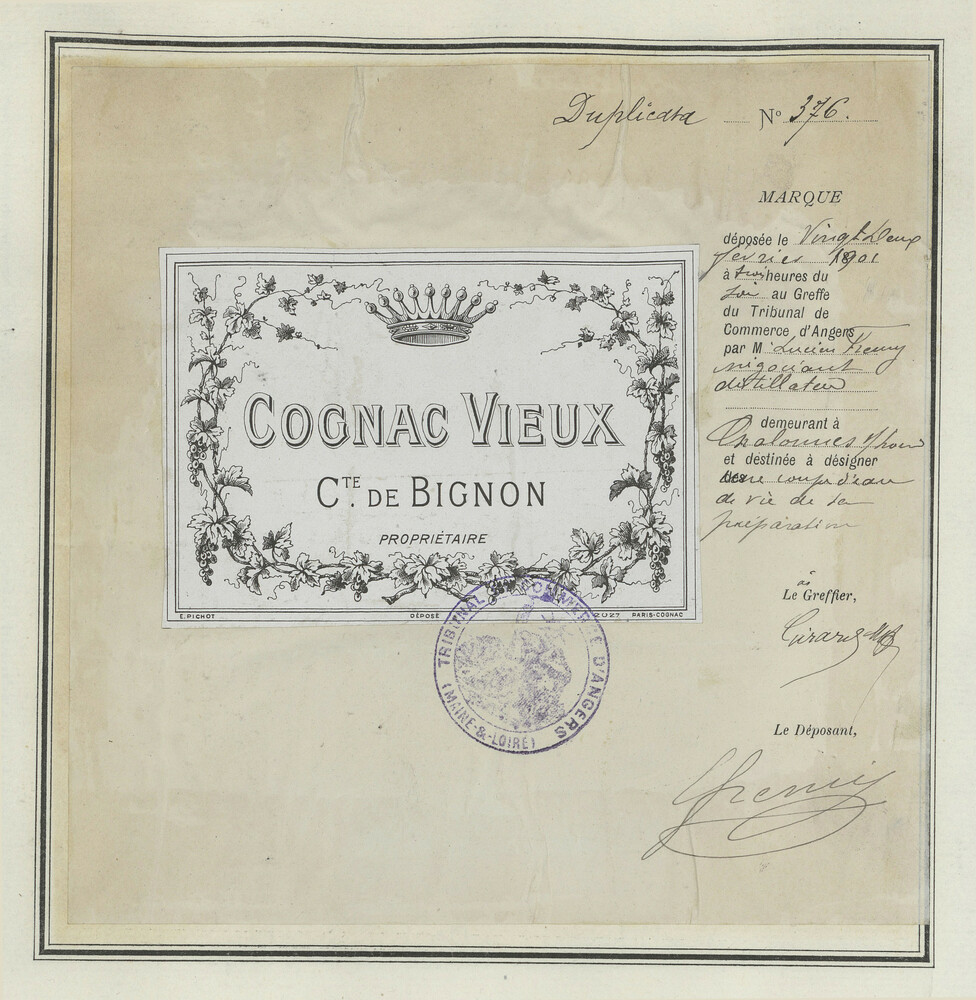 Duplicata N° 376.
MARQUE
déposée le Vingt Deux
février 1901
à trois heures du
soir au Greffe
du Tribunal de
Commerce d'Angers
par M Lucien
négociant
distillateur
demeurant à
Chalonnes s/Loire
et destinée à désigner
coupe d'eau
de vie de sa
préparation
COGNAC VIEUX
CTE. DE BIGNON
PROPRIÉTAIRE
E. PICHOT DÉPOSÉ 2027 PARIS-COGNAC
TRIBUNAL DE COMMERCE D'ANGERS
(MAINE-&-LOIRE)
Le Greffier,
Le Déposant,